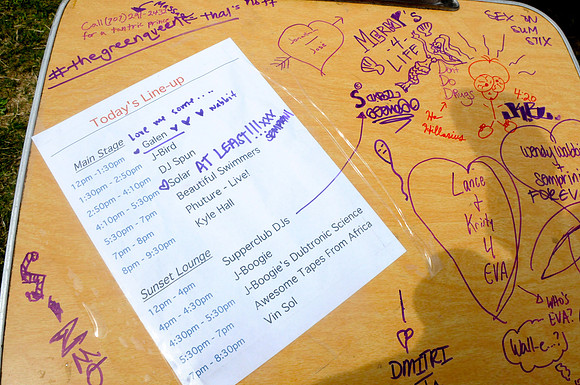 Call (707) 291-2432
for a tantric
#thegreenqueen
that's me!!
Today's Line-up
Love me some....
Main Stage Galen wabbit
12pm - 1:30pm J-Bird
1:30pm - 2:50pm DJ Spun
2:50pm - 4:10pm Solar AT LEAST!!!xxx
4:10pm - 5:30pm Beautiful Swimmers
5:30pm - 7pm Phuture - Live!
7pm - 8pm Kyle Hall
8pm - 9:30pm
Sunset Lounge Supperclub DJs
12pm - 4pm J-Boogie
4pm - 4:30pm J-Boogie's Dubtronic Science
4:30pm - 5:30pm Awesome Tapes From Africa
5:30pm - 7pm Vin Sol
7pm - 8:30pm
Jose
4
LIFE
SEX IN
SUM
STIX
Don't
Do
Drugs
4:20
Ha
Hillarius
Wendy Wabbit
&
FOREV
Lance
&
Kristy
4
EVA
WHO'S
EVA?
Wall-e...?
I
DMITRI